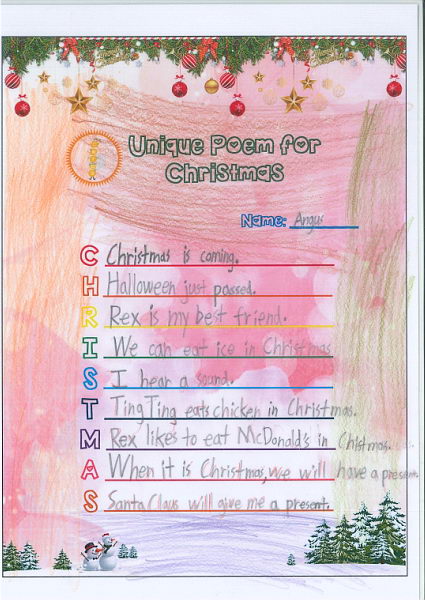 Unique Poem for
Christmas
Name: Angus
C Christmas is coming.
H Halloween just passed.
R Rex is my best friend.
I We can eat ice in Christmas
S I hear a sound.
T TingTing eats chicken in Christmas.
M Rex likes to eat McDonald's in Chistmas.
A When it is Christmas, we will have a present.
S Santa Claus will give me a present.